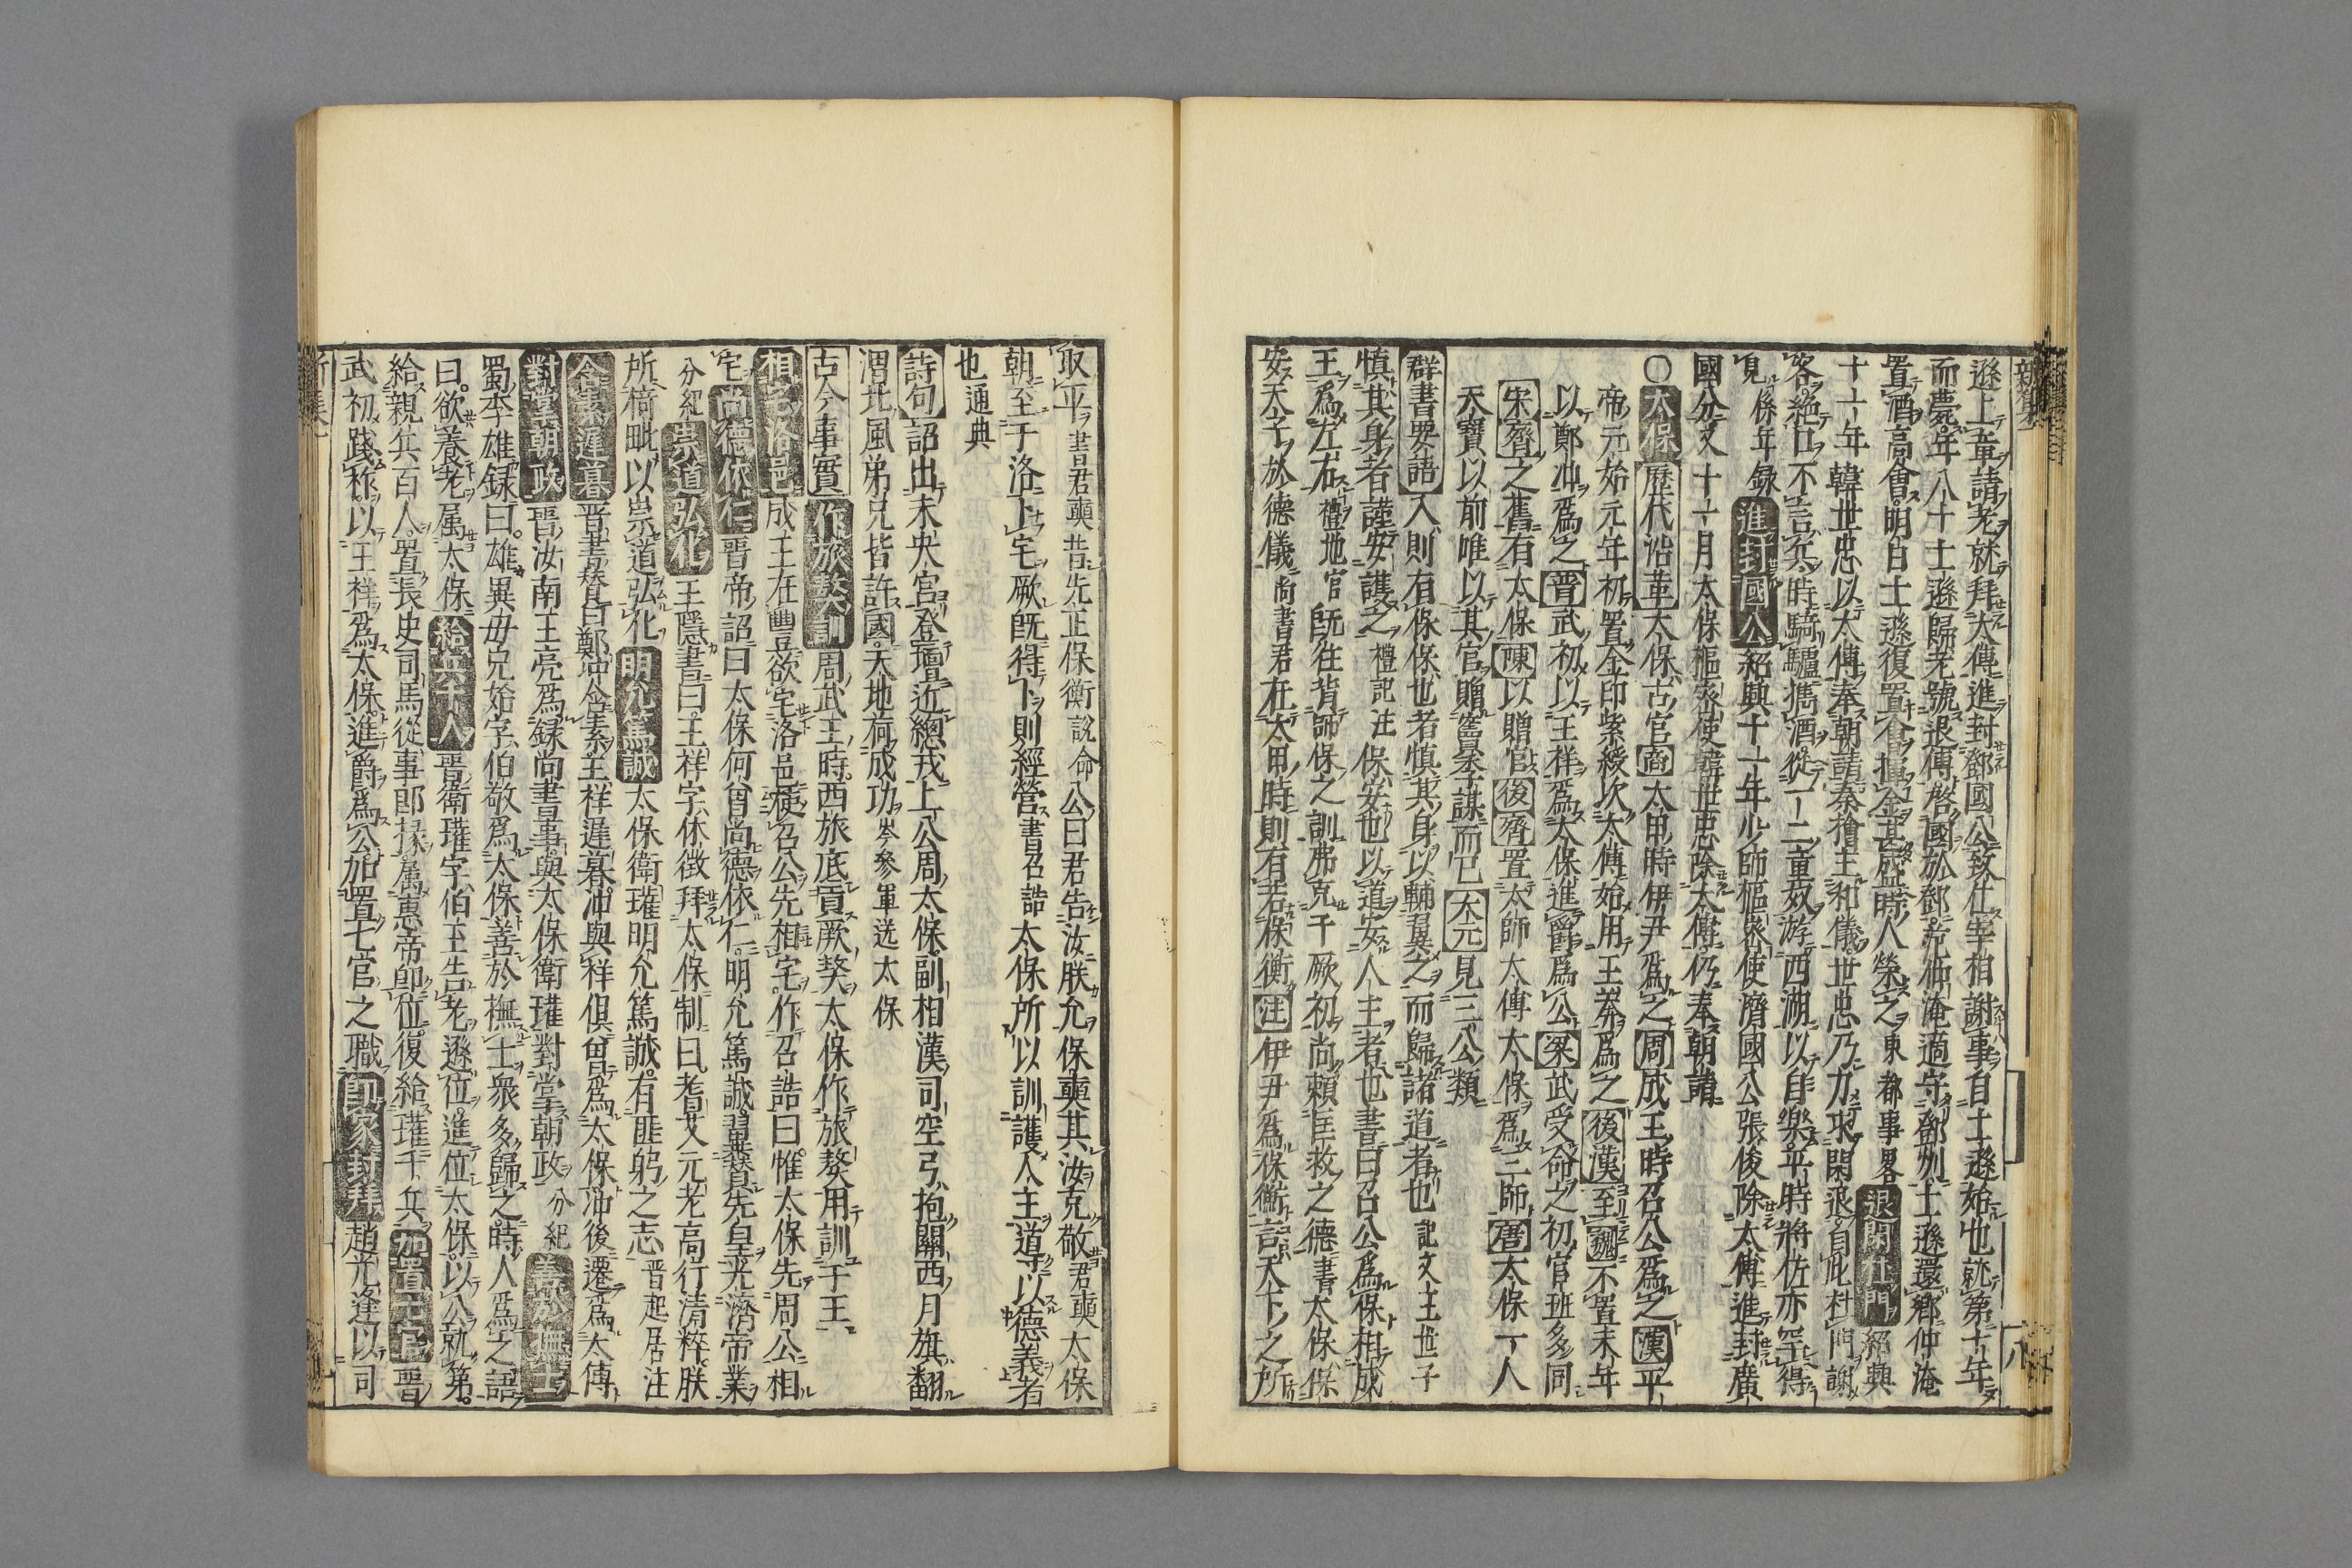 遜上章請老就拜太傅進封鄧國公致仕宰相謝事自士遜始也就第十年
而薨年八十士遜歸老號退傅啓國於鄧帝仲淹適守鄧州士遜還鄉仲淹
置酒高會明白士遜復置會揮金甚盛時人榮之東都事畧退閑杜門紹興
十一年韓世忠以太傅奉朝請秦檜主和儀世忠乃力求閑退自此杜門謝
客絶口不言兵時騎驢携酒從一二童奴游西湖以自樂平時將佐亦罕得
見係年録進封國公紹興十一年少師樞密使濟國公張俊除太傅進封廣
國分又十一月太保樞密使韓世忠除太傅仍奉朝請
〇太保歷代沿革太保古官商太甲時伊尹爲之周成王時召公爲之漢平
帝元始元年初置金印紫綬次太傅始用王莽爲之後漢至魏不置末年
以鄭冲爲之晋武初以王祥爲太保進爵爲公梁武受命之初官班多同
宋齊之舊有太保陳以贈官後齊置太師太傅太保爲三師唐太保一人
天寶以前唯以其官贈竇景子謀而已大元見三公類
群書要語入則有保保也者慎其身以輔翼之而歸諸道者也記文王世子
慎其身者謹安護之禮記注保安也以道安人主者也書曰召公爲保相成
王爲左右禮地官既往背師保之訓弗克于厥初尚頼匡救之德書太保保
安天子於德儀尚書君在太甲時則有若保衡注伊尹爲保衡言天下之所
取平書君奭昔先正保衡説命公曰君告汝朕允保奭其汝克敬君奭太保
朝至于洛卜宅厥既得卜則經營書召誥太保所以訓護人主導以德義者
也通典
詩句詔出未央宮登壇近總戎上公周太保副相漢司空弓抱關西月旗翻
渭北風弟兄皆許國天地荷成功岑參軍送太保
古今事實作旅獒訓周武王時西旅底貢厥獒太保作旅獒用訓于王
相宅洛邑成王在豐欲宅洛邑使召公先相宅作召誥曰惟太保先周公相
宅尚德依仁晋帝詔曰太保何曾尚德依仁明允篤誠翼賛先皇光濟帝業
分紀崇道弘化王隱書曰王祥字休徵拜太保制曰耆艾元老高行清粹朕
所倚毗以崇道弘化明允篤誠太保衛瓘明允篤誠有匪躬之志晋起居注
合素遲暮晋書賛曰鄭冲含素王祥遲暮冲與祥俱曾爲太保冲後遷爲太傅
對掌朝政晋汝南王亮爲録尚書事與太保衛瓘對掌朝政分紀善於撫士
蜀李雄録曰雄異母兄始字伯敬爲太保善於撫士衆多歸之時人爲之語
曰欲養老屬太保給兵千人晋衛瓘字伯玉告老遜位進位太保以公就第
給親兵百人置長史司馬從事郎掾屬惠帝即位復給瓘千兵加置七官晋
武初踐祚以王祥爲太保進爵爲公加置七官之職即家封拜趙光逢以司